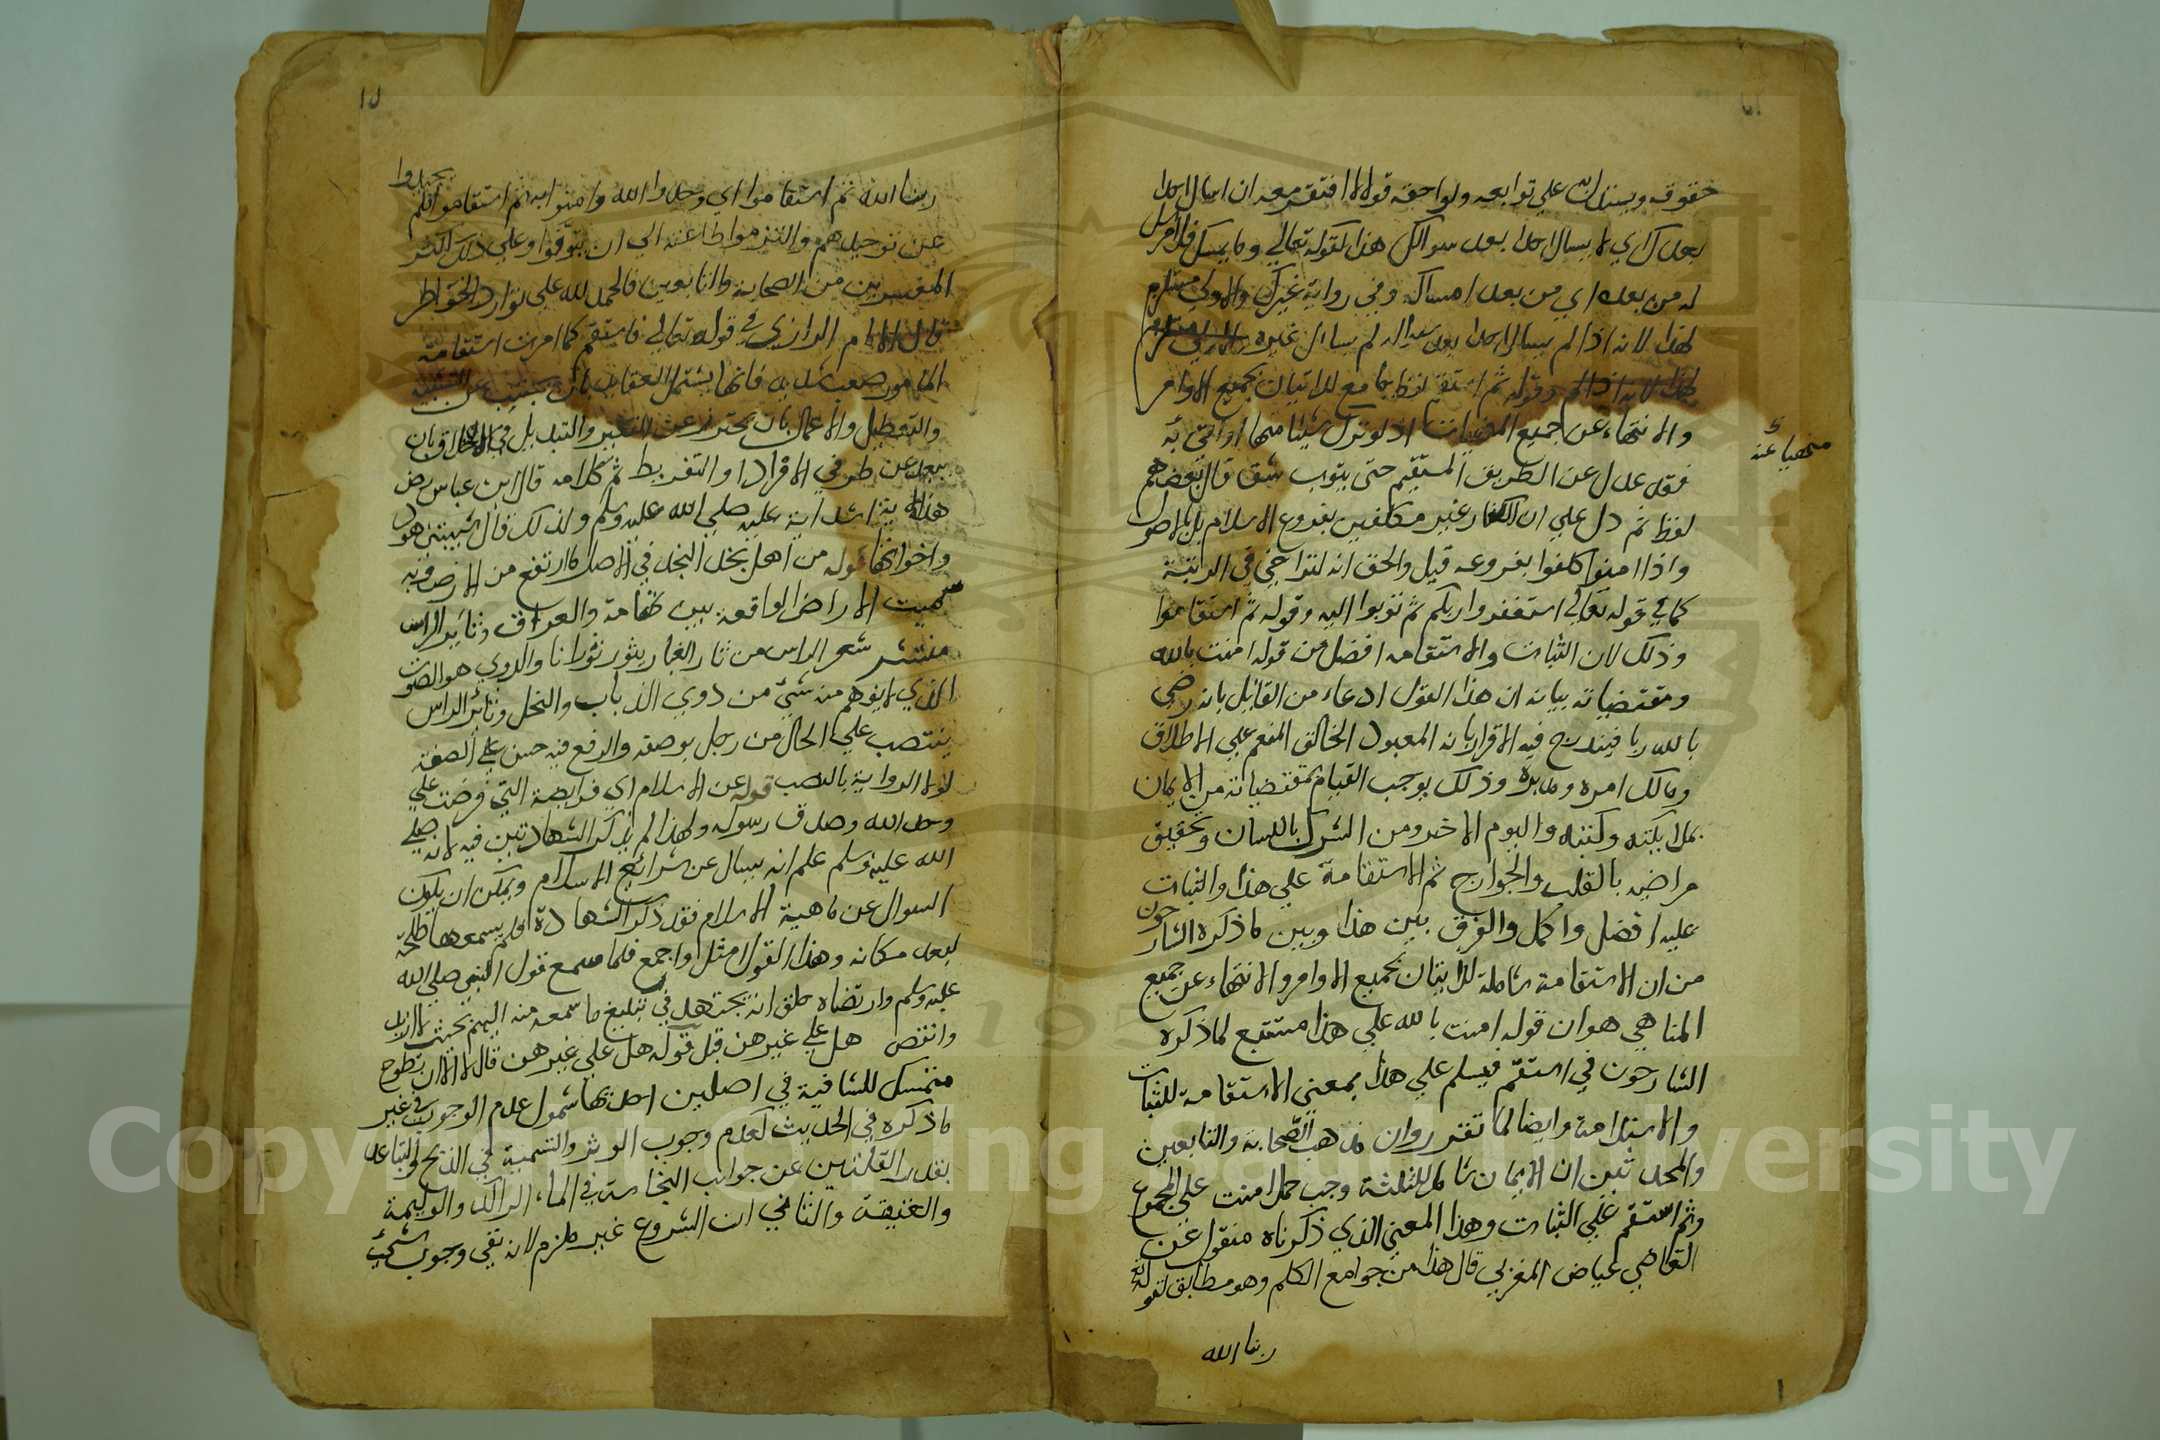 حقوقه ويستدل به على توابعه ولواحقه قوله لا افتقر معه ان اسال احدا
بعدك اي لا يسال احدا بعد سوالك هذا كقوله تعالي وما يمسك فلا مرسل
له من بعده اي من بعد امساكه وفي رواية غيرك والاول مستلزم
لهذا لانه اذا لم يسال احدا بعد سواله لم يسال غيره
لهذا لانه اذا الم وقوله ثم استقم لفظ جامع للاتيان بجميع الاوامر
والانتهاء عن جميع المنهيات اذ لو ترك شيئا منها او اتى به
منهيا عنه
فقد عدل عن الطريق المستقيم حتى يتوب شق قال بعضهم
لفظ ثم دل على ان الكفار غير مكلفين بفروع الاسلام بل بالاصول
واذا امنوا كلفوا بفروعه قيل والحق انه لتراخي في الرتبة
كما في قوله تعالي استغفروا ربكم ثم توبوا اليه وقوله ثم استقاموا
وذلك لان الثبات والاستقامه افضل من قوله امنت بالله
ومقتضياته بيانه ان هذا القول ادعاء من القايل بانه رضي
بالله ربا فيندرج فيه الاقرار بانه المعبود الخالق المنعم علي الاطلاق
ومالك امره ومدبره وذلك يوجب القيام بمقتضياته من الايمان
بملايكته وكتبه واليوم الاخر ومن الشرك باللسان وتحقيق
مراضيه بالقلب والجوارح ثم الاستقامة علي هذا والثبات
عليه افضل واكمل والفرق بين هذا وبين ما ذكره الشارحون
من ان الاستقامة شاملة للاتيان بجميع الاوامر والانتهاء عن جميع
المناهي هو ان قوله امنت بالله علي هذا مستتبع لما ذكره
الشارحون في استقم فيسلم علي هذا بمعني الاستقامة للثبات
والاستدامة وايضا لما تقرر وان مذهب الصحابة والتابعين
والمحدثين ان الايمان شامل للثلثة وجب حمل امنت علي المجموع
وثم استقم علي الثبات وهذا المعني الذي ذكرناه منقول عن
القاضي عياض المغربي قال هذا من جوامع الكلم وهو مطابق لقوله
ربنا الله
١٥
ربنا الله ثم استقاموا اي وحدوا الله وامنوا به ثم استقاموا فلم يحيدوا
عن توحيدهم والتزموا طاعته الي ان يتوفوا وعلي ذلك اكثر
المفسرين من الصحابة والتابعين فالحمد لله علي توارد الخواطر
قال الامام الرازي في قوله تعالي فاستقم كما امرت استقامة
المامور صعب شديد فانها يشتمل العقايد بان يجتنب عن التشبيه
والتعطيل والاعمال بان يحترز عن التغيير والتبديل في الاخلاق بان
يبعد عن طرفي الافراط والتفريط ثم كلامه قال ابن عباس رض
هذه الاية اشد اية عليه صلي الله عليه وسلم ولذلك قال شيبتني هود
واخواتها قوله من اهل نجد النجد في الاصل ما ارتفع من الارض وبه
سميت الاراضي الواقعة بين تهامة والعراق وثاير الراس
منتشر شعر الراس من ثار الغبار يثور ثورانا والدوي هو الصوت
الذي لا يفهم منه شئ من دوي الذباب والنحل وثائر الراس
ينتصب علي الحال من رجل بوصفه والرفع فيه حسن علي الصفة
لولا الرواية بالنصب قوله عن الاسلام اي فرايضه التي فرضت علي
وحد الله وصدق رسوله ولهذا لم يذكر الشهادتين فيه لانه صلي
الله عليه وسلم علم انه يسال عن شرائع الاسلام ويمكن ان يكون
السوال عن ماهية الاسلام فقد ذكر الشهادة فلم يسمعها طلحة
لبعد مكانه وهذا القول امثل واجمع فلما سمع قول النبي صلي الله
عليه وسلم وارتضاه علق انه يجتهد في تبليغ ما سمعه منه اليهم بحيث لا ازيد
وانقص هل علي غيرهن قيل قوله هل علي غيرهن قال لا الا ان تطوع
متمسك للشافية في اصلين احدهما شمول عدم الوجوب في غير
ما ذكره في الحديث كعدم وجوب الوتر والتسمية في الذبح والتباعد
بقدر القلتين عن جوانب النجاسة في الماء الراكد والوليمة
والعقيقة والثاني ان الشروع غير ملزم لانه نفي وجوب شئ